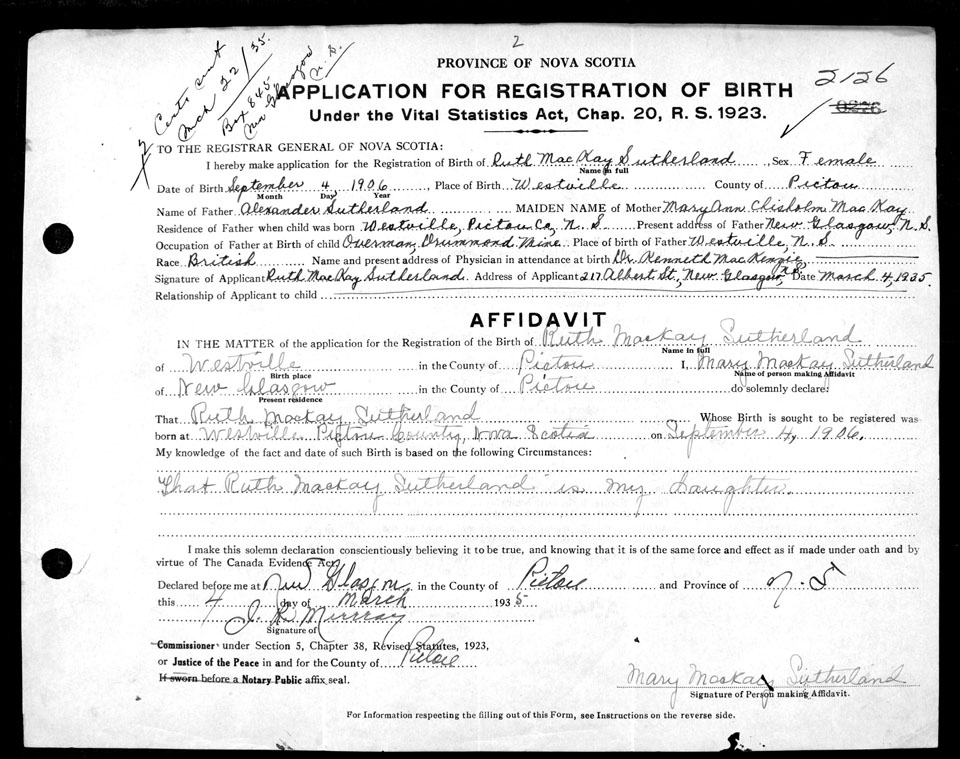 2
PROVINCE OF NOVA SCOTIA
APPLICATION FOR REGISTRATION OF BIRTH
Under the Vital Statistics Act, Chap. 20, R. S. 1923.
2126
0226
2 Certs sent
Mch 22/35.
Box 845
New Glasgow
N. S.
TO THE REGISTRAR GENERAL OF NOVA SCOTIA:
I hereby make application for the Registration of Birth of Ruth MacKay Sutherland, Sex Female
Name in full
Date of Birth September 4, 1906 Place of Birth Westville County of Pictou
Month Day Year
Name of Father Alexander Sutherland MAIDEN NAME of Mother Mary Ann Chisholm MacKay
Residence of Father when child was born Westville, Pictou Co, N. S. Present address of Father New Glasgow, N. S.
Occupation of Father at Birth of child Overman, Drummond Mine. Place of birth of Father Westville, N. S.
Race British Name and present address of Physician in attendance at birth Dr. Kenneth MacKenzie
Signature of Applicant Ruth MacKay Sutherland Address of Applicant 217 Albert St., New Glasgow, N.S. Date March 4, 1935.
Relationship of Applicant to child
AFFIDAVIT
IN THE MATTER of the application for the Registration of the Birth of Ruth Mackay Sutherland
Name in full
of Westville in the County of Pictou I, Mary Mackay Sutherland
Birth place Name of person making Affidavit
of New Glasgow in the County of Pictou do solemnly declare:
Present residence
That Ruth Mackay Sutherland Whose Birth is sought to be registered was
born at Westville Pictou County, Nova Scotia on September 4, 1906.
My knowledge of the fact and date of such Birth is based on the following Circumstances:
That Ruth Mackay Sutherland is my Daughter.
I make this solemn declaration conscientiously believing it to be true, and knowing that it is of the same force and effect as if made under oath and by
virtue of The Canada Evidence Act.
Declared before me at New Glasgow in the County of Pictou and Province of N. S
this 4 day of March 1935
J. R. Murray
Signature of
Commissioner under Section 5, Chapter 38, Revised Statutes, 1923,
or Justice of the Peace in and for the County of Pictou
If sworn before a Notary Public affix seal.
Mary Mackay Sutherland
Signature of Person making Affidavit.
For Information respecting the filling out of this Form, see Instructions on the reverse side.